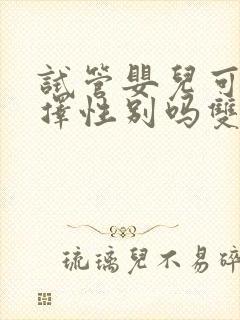 試管嬰兒可
擇性別吗雙
琉璃兒不易碎